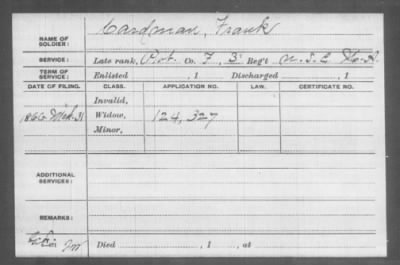 NAME OF SOLDIER: Cardman, Frank
SERVICE: Late rank, Pvt. Co. F, 3 Reg't U.S.C. H.A.
TERM OF SERVICE: Enlisted , 1 Discharged , 1
DATE OF FILING. CLASS. APPLICATION NO. LAW. CERTIFICATE NO.
Invalid,
1866 Mch. 31 Widow, 124,327
Minor,
ADDITIONAL SERVICES:
REMARKS:
Died , 1 , at